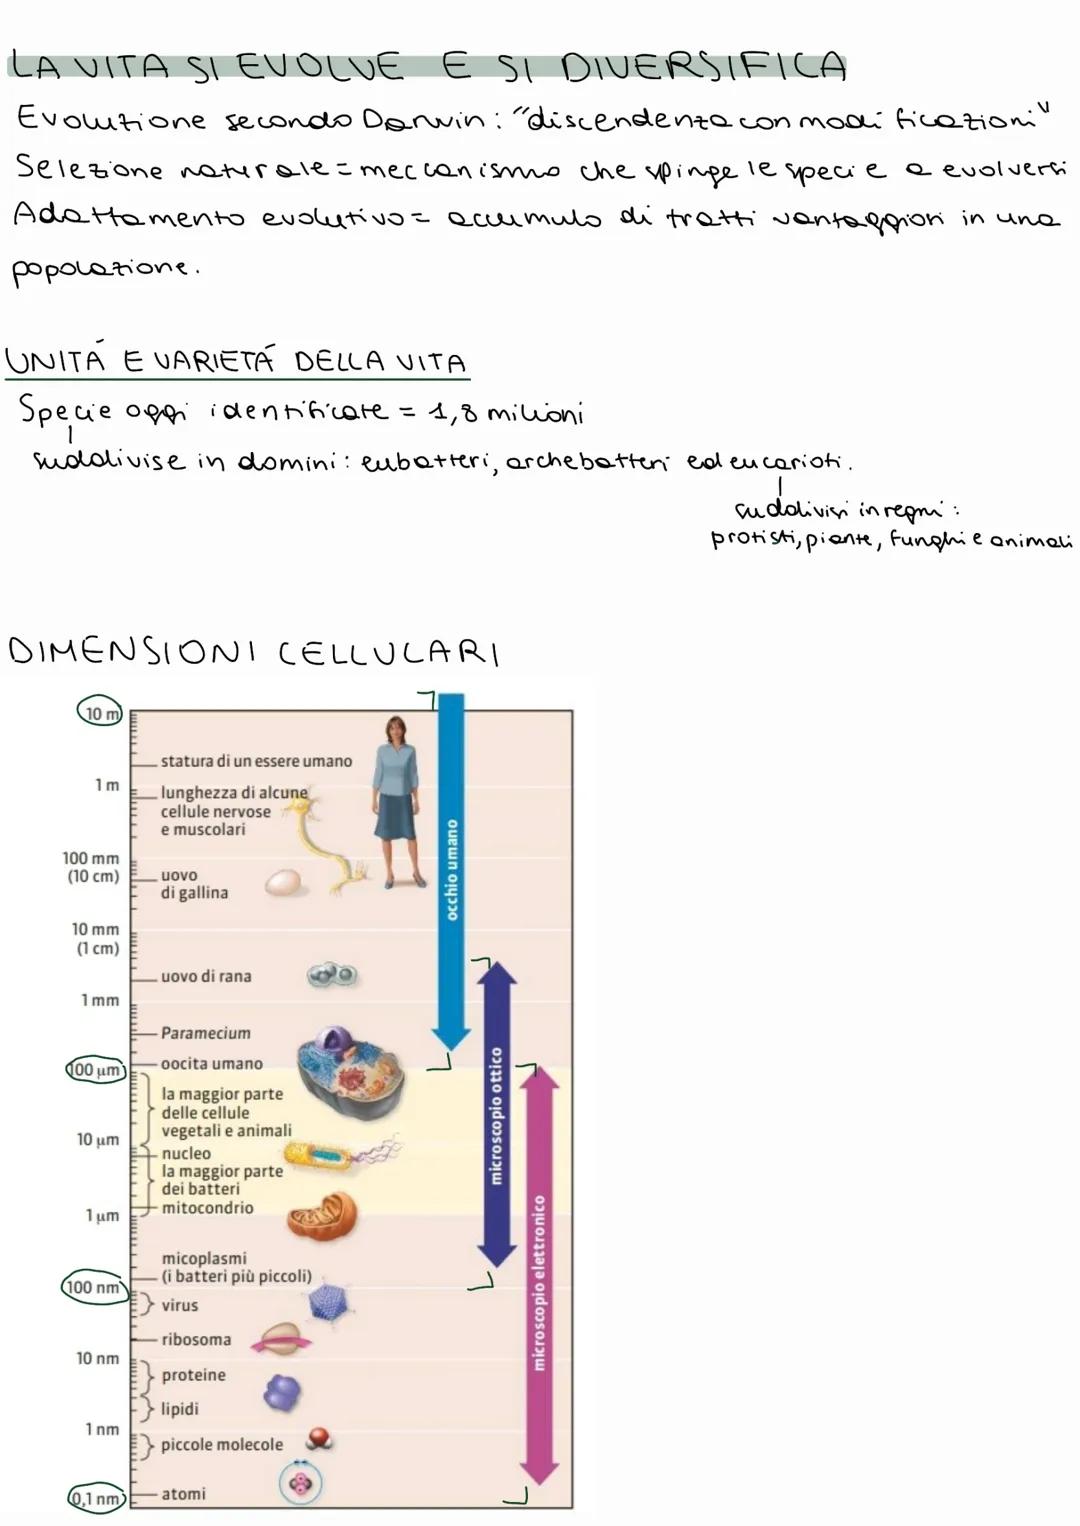 LA VITA SI EVOLVE E SI DIVERSIFICA
Evoluzione secondo Darwin: "discendenza con modificazioni"
Selezione naturale = meccanismo che spinge le specie a evolversi
Adattamento evolutivo = accumulo di tratti vantaggiosi in una
popolazione.
UNITÁ E VARIETÁ DELLA VITA
Specie oggi identificate = 1,8 milioni
suddivise in domini: eubatteri, archebatteri ed eucarioti.
suddivisi in regni:
protisti, piante, funghi e animali
DIMENSIONI CELLULARI
10 m
statura di un essere umano
1 m
lunghezza di alcune
cellule nervose
e muscolari
100 mm
(10 cm)
uovo
di gallina
10 mm
(1 cm)
uovo di rana
1 mm
Paramecium
100 µm
oocita umano
la maggior parte
delle cellule
vegetali e animali
10 µm
nucleo
la maggior parte
dei batteri
mitocondrio
1 µm
micoplasmi
(i batteri più piccoli)
100 nm
virus
ribosoma
10 nm
proteine
lipidi
1 nm
piccole molecole
0,1 nm
atomi
occhio umano
microscopio ottico
microscopio elettronico